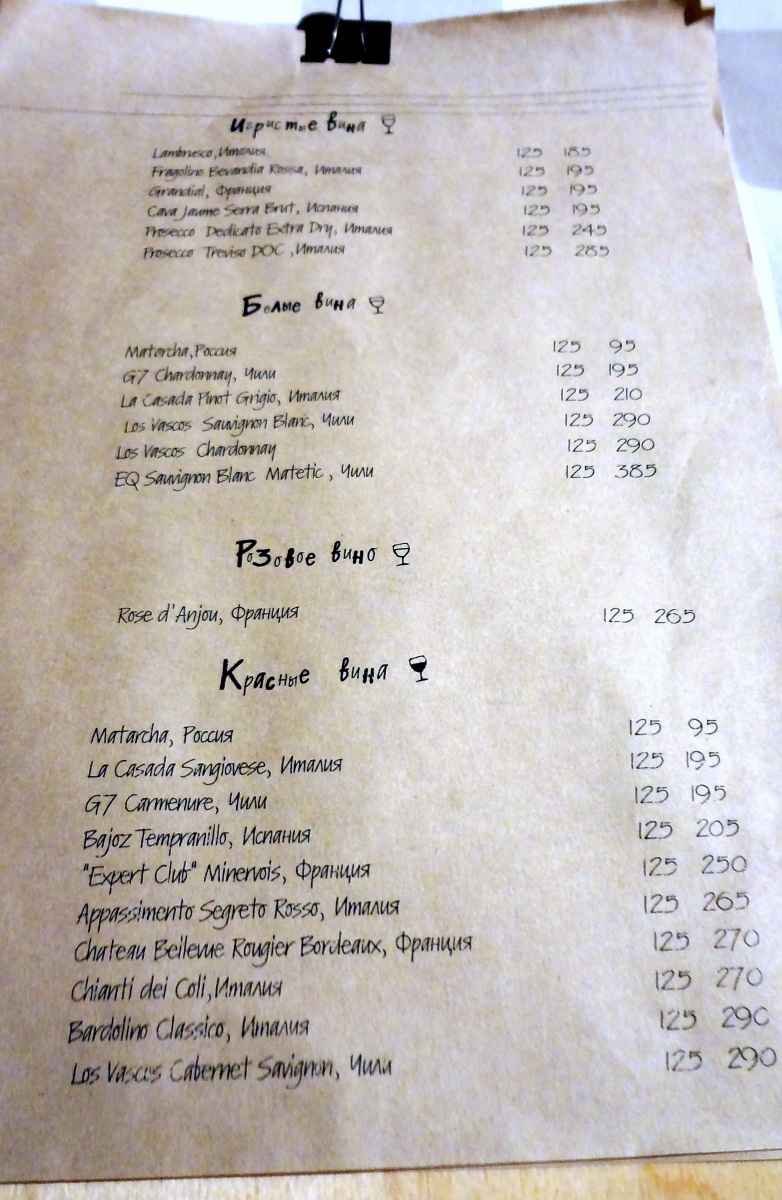 Игристые вина
Lambrusco, Италия 125 185
Fragolino Bevandia Rossa, Италия 125 195
Grandial, Франция 125 195
Cava Jaume Serra Brut, Испания 125 195
Prosecco Dedicato Extra Dry, Италия 125 245
Prosecco Treviso DOC ,Италия 125 285
Белые вина
Matarcha,Россия 125 95
G7 Chardonnay, Чили 125 195
La Casada Pinot Grigio, Италия 125 210
Los Vascos Sauvignon Blanc, Чили 125 290
Los Vascos Chardonnay 125 290
EQ Sauvignon Blanc Matetic , Чили 125 385
Розовое вино
Rose d'Anjou, Франция 125 265
Красные вина
Matarcha, Россия 125 95
La Casada Sangiovese, Италия 125 195
G7 Carmenure, Чили 125 195
Bajoz Tempranillo, Испания 125 205
"Expert Club" Minervois, Франция 125 250
Appassimento Segreto Rosso, Италия 125 265
Chateau Bellevue Rougier Bordeaux, Франция 125 270
Chianti dei Coli,Италия 125 270
Bardolino Classico, Италия 125 290
Los Vascos Cabernet Savignon, Чили 125 290